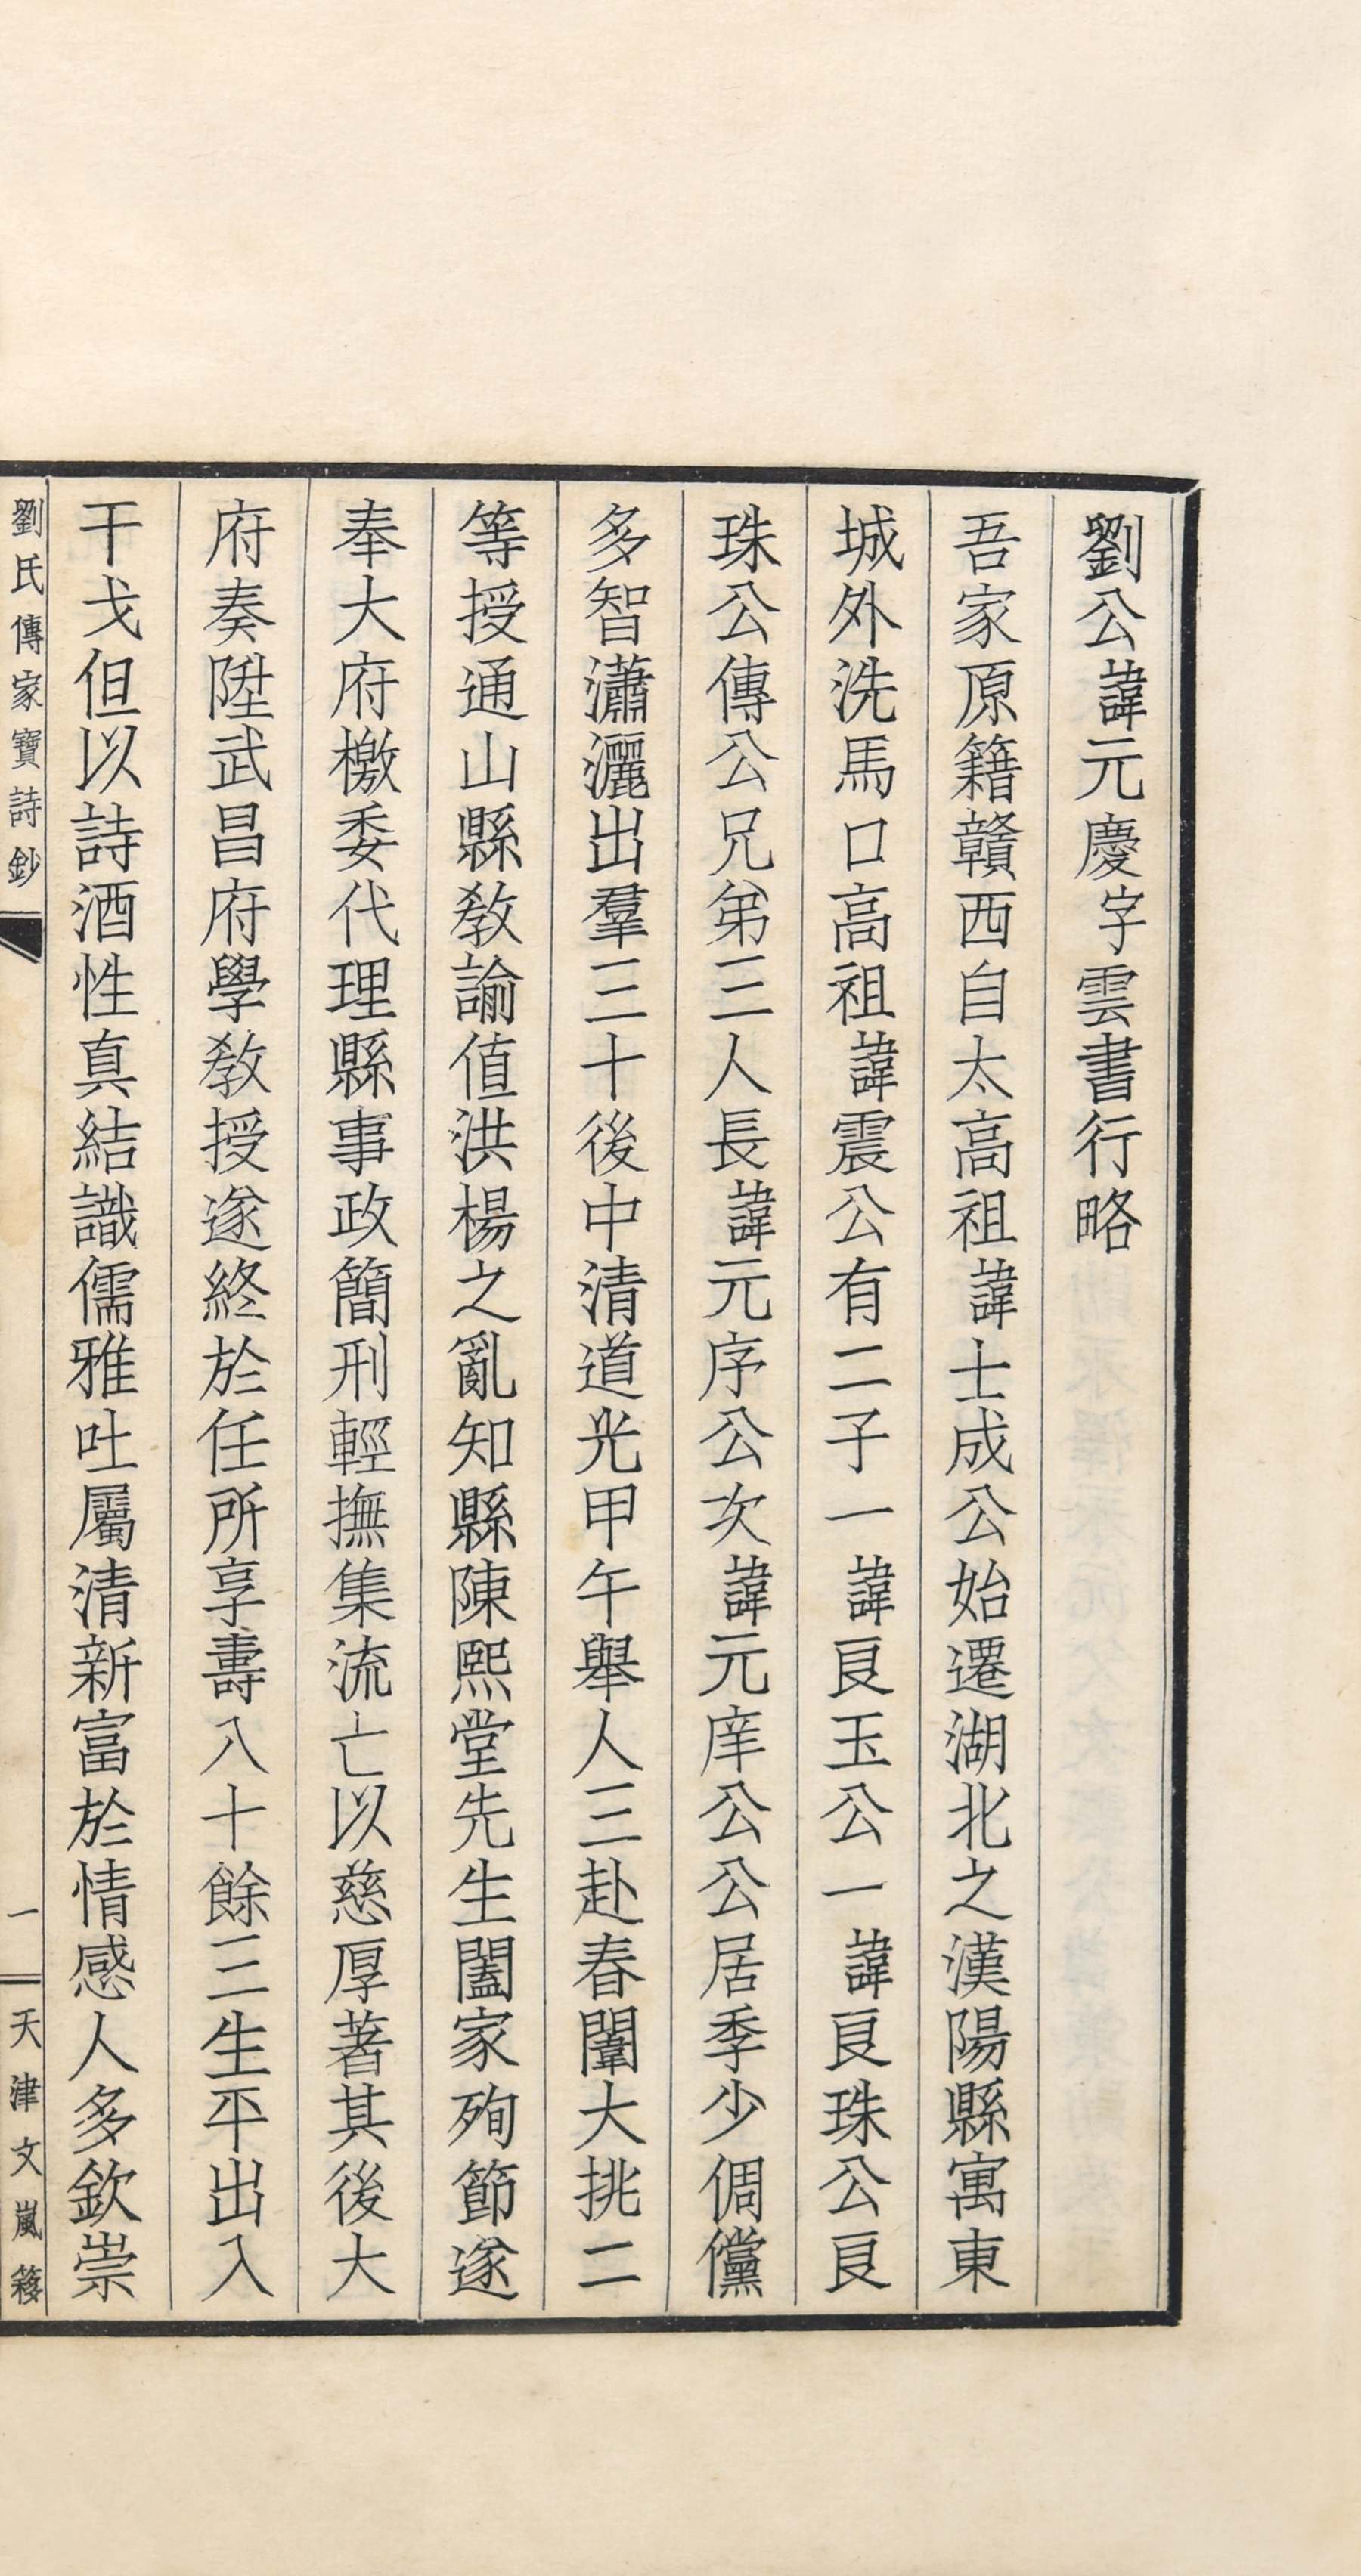 劉公諱元慶字雲書行略
吾家原籍贛西自太高祖諱士成公始遷湖北之漢陽縣寓東
城外洗馬口高祖諱震公有二子一諱良玉公一諱良珠公良
珠公傳公兄弟三人長諱元序公次諱元庠公公居季少倜儻
多智瀟灑出羣三十後中清道光甲午舉人三赴春闈大挑二
等授通山縣教諭值洪楊之亂知縣陳熙堂先生闔家殉節遂
奉大府檄委代理縣事政簡刑輕撫集流亡以慈厚著其後大
府奏陞武昌府學教授遂終於任所享壽八十餘三生平出入
干戈但以詩酒性真結識儒雅吐屬清新富於情感人多欽崇
劉氏傳家寶詩鈔 一 天津文嵐簃